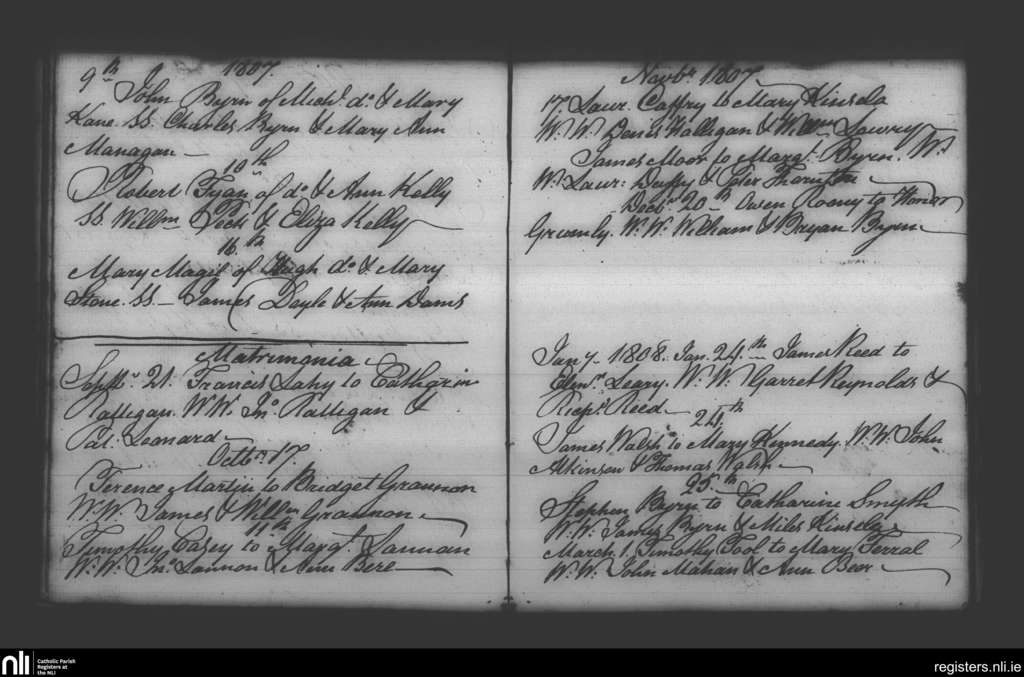 9th 1807.
John Byrn of Michl. do. & Mary
Kane. SS. Charles Byrn & Mary Ann
Managan
10th
Robert Fyan of do. & Ann Kelly
SS. Willm & Eliza Kelly
16th
Mary Magil of Hugh do. & Mary
Stone. SS. James Doyle & Ann Dams
Matrimonia
Septbr. 21. Francis Lahy to Catharin
Ralligan. W.W. Jno. Ralligan &
Pat: Leonard
Octbr. 17.
Terence Martin to Bridget Grannon
W.W. James & Willm Grannon
Timothy Casey to Margt. Lannan
W.W. Jno. Lannon & Ann Bere
Novbr. 1807
17. Laur. Caffry to Mary Kinsela
W.W. Denis Halligan & Willm Lowry
James Moor to Margt. Byrn. W.
W. Laur: Duffy & Peter Thornton
Decbr. 20th Owen Roony to Honor
Gromly. W.W. William & Bryan Byrn
Jany. 1808. Jan. 24th James Reed to
Elenr. Leary. W.W. Garret Reynolds &
Reed
24th
James Walsh to Mary Kennedy. W.W. John
Atkinson & Thomas Walsh
25th
Stephen Byrn to Catharine Smyth
W.W. James Byrn & Miles Kinsela
March 1. Timothy Tool to Mary Ferral
W.W. John Mahan & Ann Beer
nli
Catholic Parish
Registers at
the NLI
registers.nli.ie